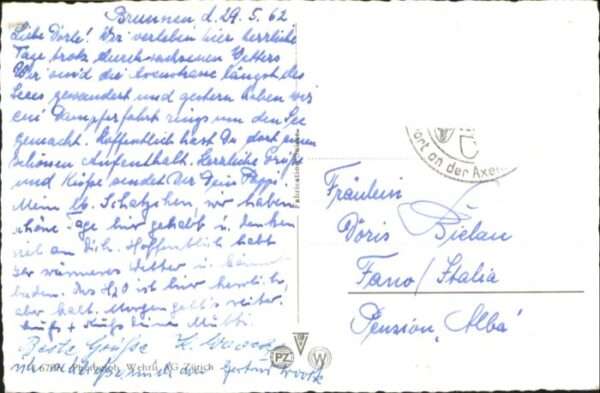 Brunnen d. 29. 5. 62
Liebe Dorle! Wir verleben hier herrliche
Tage trotz durchwachsenen Wetters
Wir sind die Axenstrasse längst des
Sees gewandert und gestern haben wir
ein Dampferfahrt rings um den See
gemacht. Hoffentlich hast Du dort einen
schönen Aufenthalt. Herzliche Grüße
und Küße sendet Dir Dein Pappi.
Mein lb. Schatzchen, wir haben
schöne Tage hier gehabt u. denken
viel an Dich. Hoffentlich habt
Ihr wärmeres Wetter u. könnt
baden. Das H2O ist hier herrlich,
aber kalt. Morgen geht's weiter.
Mutti
Beste Grüße
Wehrli AG Zürich
Gertrud
PZ W
an der Axen
Fräulein
Doris Bielau
Fano/Italia
Pension „Alba"